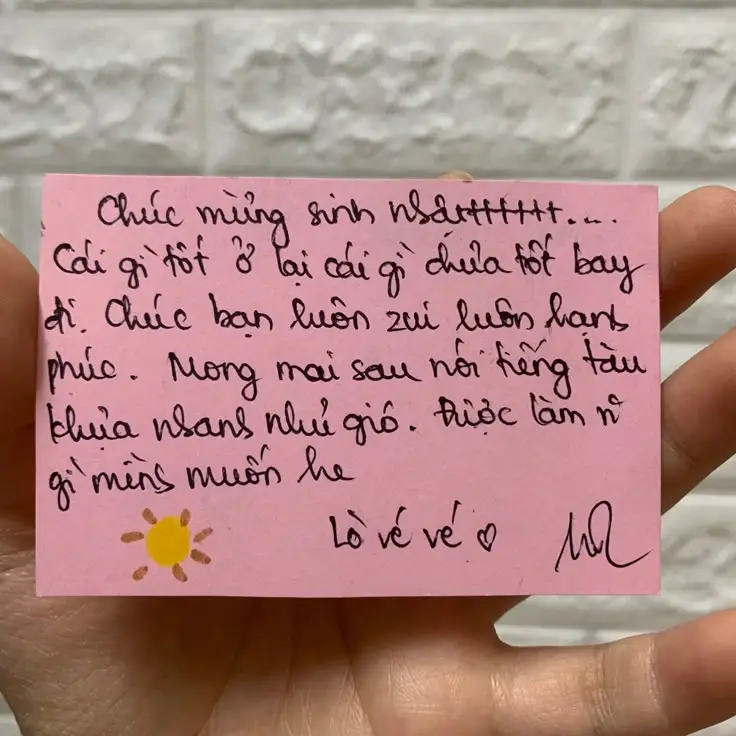 Chúc mừng sinh nhâtttttt....
Cái gì tốt ở lại cái gì chưa tốt bay
đi. Chúc bạn luôn zui luôn hạnh
phúc. Mong mai sau nói tiếng tàu
khựa nhanh như gió. Được làm n~
gì mình muốn he
Lò vé vé ♡